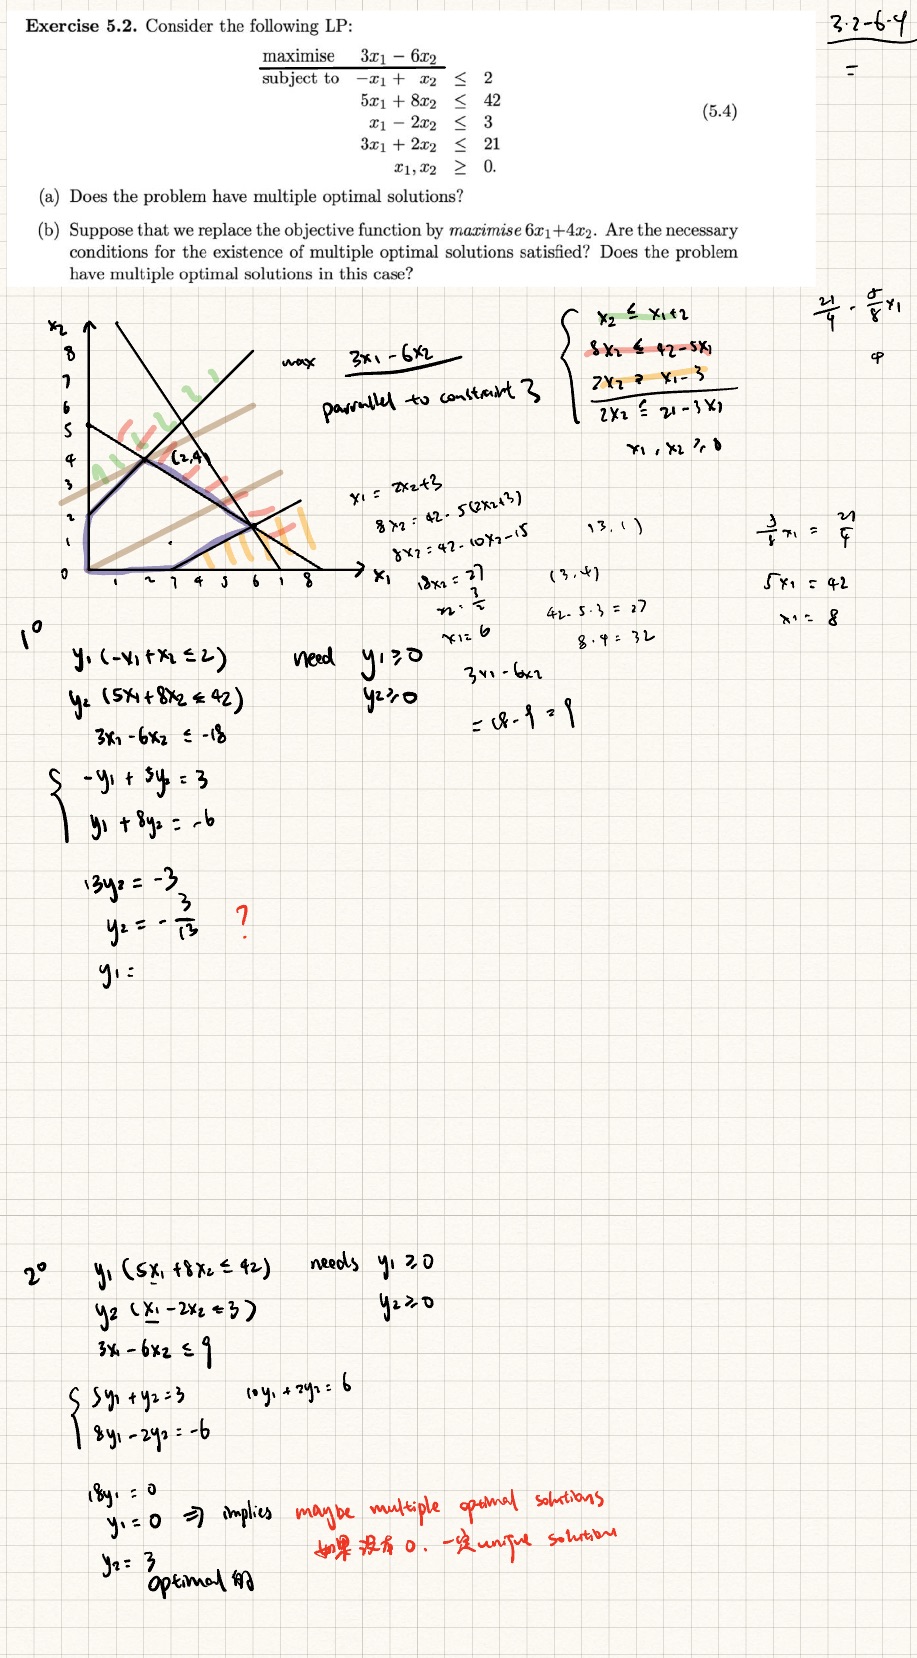 Exercise 5.2. Consider the following LP:
maximise 3x₁ − 6x₂
subject to −x₁ + x₂ ≤ 2
5x₁ + 8x₂ ≤ 42
x₁ − 2x₂ ≤ 3
3x₁ + 2x₂ ≤ 21
x₁, x₂ ≥ 0.
(5.4)
(a) Does the problem have multiple optimal solutions?
(b) Suppose that we replace the objective function by maximise 6x₁+4x₂. Are the necessary
conditions for the existence of multiple optimal solutions satisfied? Does the problem
have multiple optimal solutions in this case?
3·2-6·4
=
x₂
8
7
6
5
4
3
2
1
0
1 2 3 4 5 6 7 8 x₁
(2,4)
max 3x₁ - 6x₂
parrallel to constraint 3
x₂ ≤ x₁+2
8x₂ ≤ 42-5x₁
2x₂ ≥ x₁-3
2x₂ ≤ 21-3x₁
x₁, x₂ ≥ 0
21/4 - 5/8 x₁
x₁ = 2x₂+3
8x₂ = 42-5(2x₂+3)
8x₂ = 42-10x₂-15
18x₂ = 27
x₂ = 3/2
x₁ = 6
(3,1)
(3,4)
42-5·3 = 27
8·4 = 32
3x₁-6x₂
= 18-9 = 9
5/8 x₁ = 21/4
5x₁ = 42
x₁ = 8
1°
y₁ (-x₁+x₂ ≤ 2) need y₁ ≥ 0
y₂ (5x₁+8x₂ ≤ 42) y₂ ≥ 0
3x₁-6x₂ ≤ -18
-y₁ + 5y₂ = 3
y₁ + 8y₂ = -6
13y₂ = -3
y₂ = -3/13 ?
y₁ =
2°
y₁ (5x₁+8x₂ ≤ 42) needs y₁ ≥ 0
y₂ (x₁-2x₂ ≤ 3) y₂ ≥ 0
3x₁-6x₂ ≤ 9
5y₁+y₂ = 3 10y₁+2y₂ = 6
8y₁-2y₂ = -6
18y₁ = 0
y₁ = 0 ⇒ implies maybe multiple optimal solutions
如果没有 0. 一定 unique solution
y₂ = 3
optimal 的